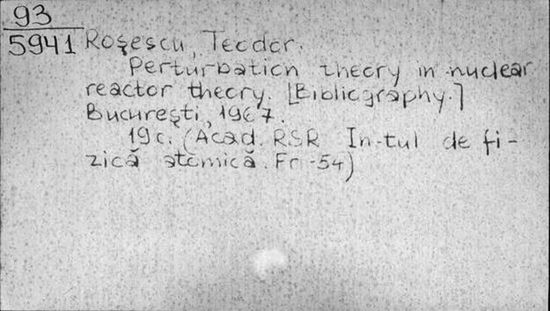 93
5941 Roşescu, Teodor.
Perturbation theory in nuclear
reactor theory. [Bibliography.]
Bucureşti, 1967.
19c. (Acad. RSR In-tul de fi-
zică atomică. Fr-54)